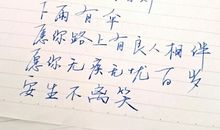 下雨有伞
愿你路上有良人相伴
愿你无疾无忧百岁
安生不离笑